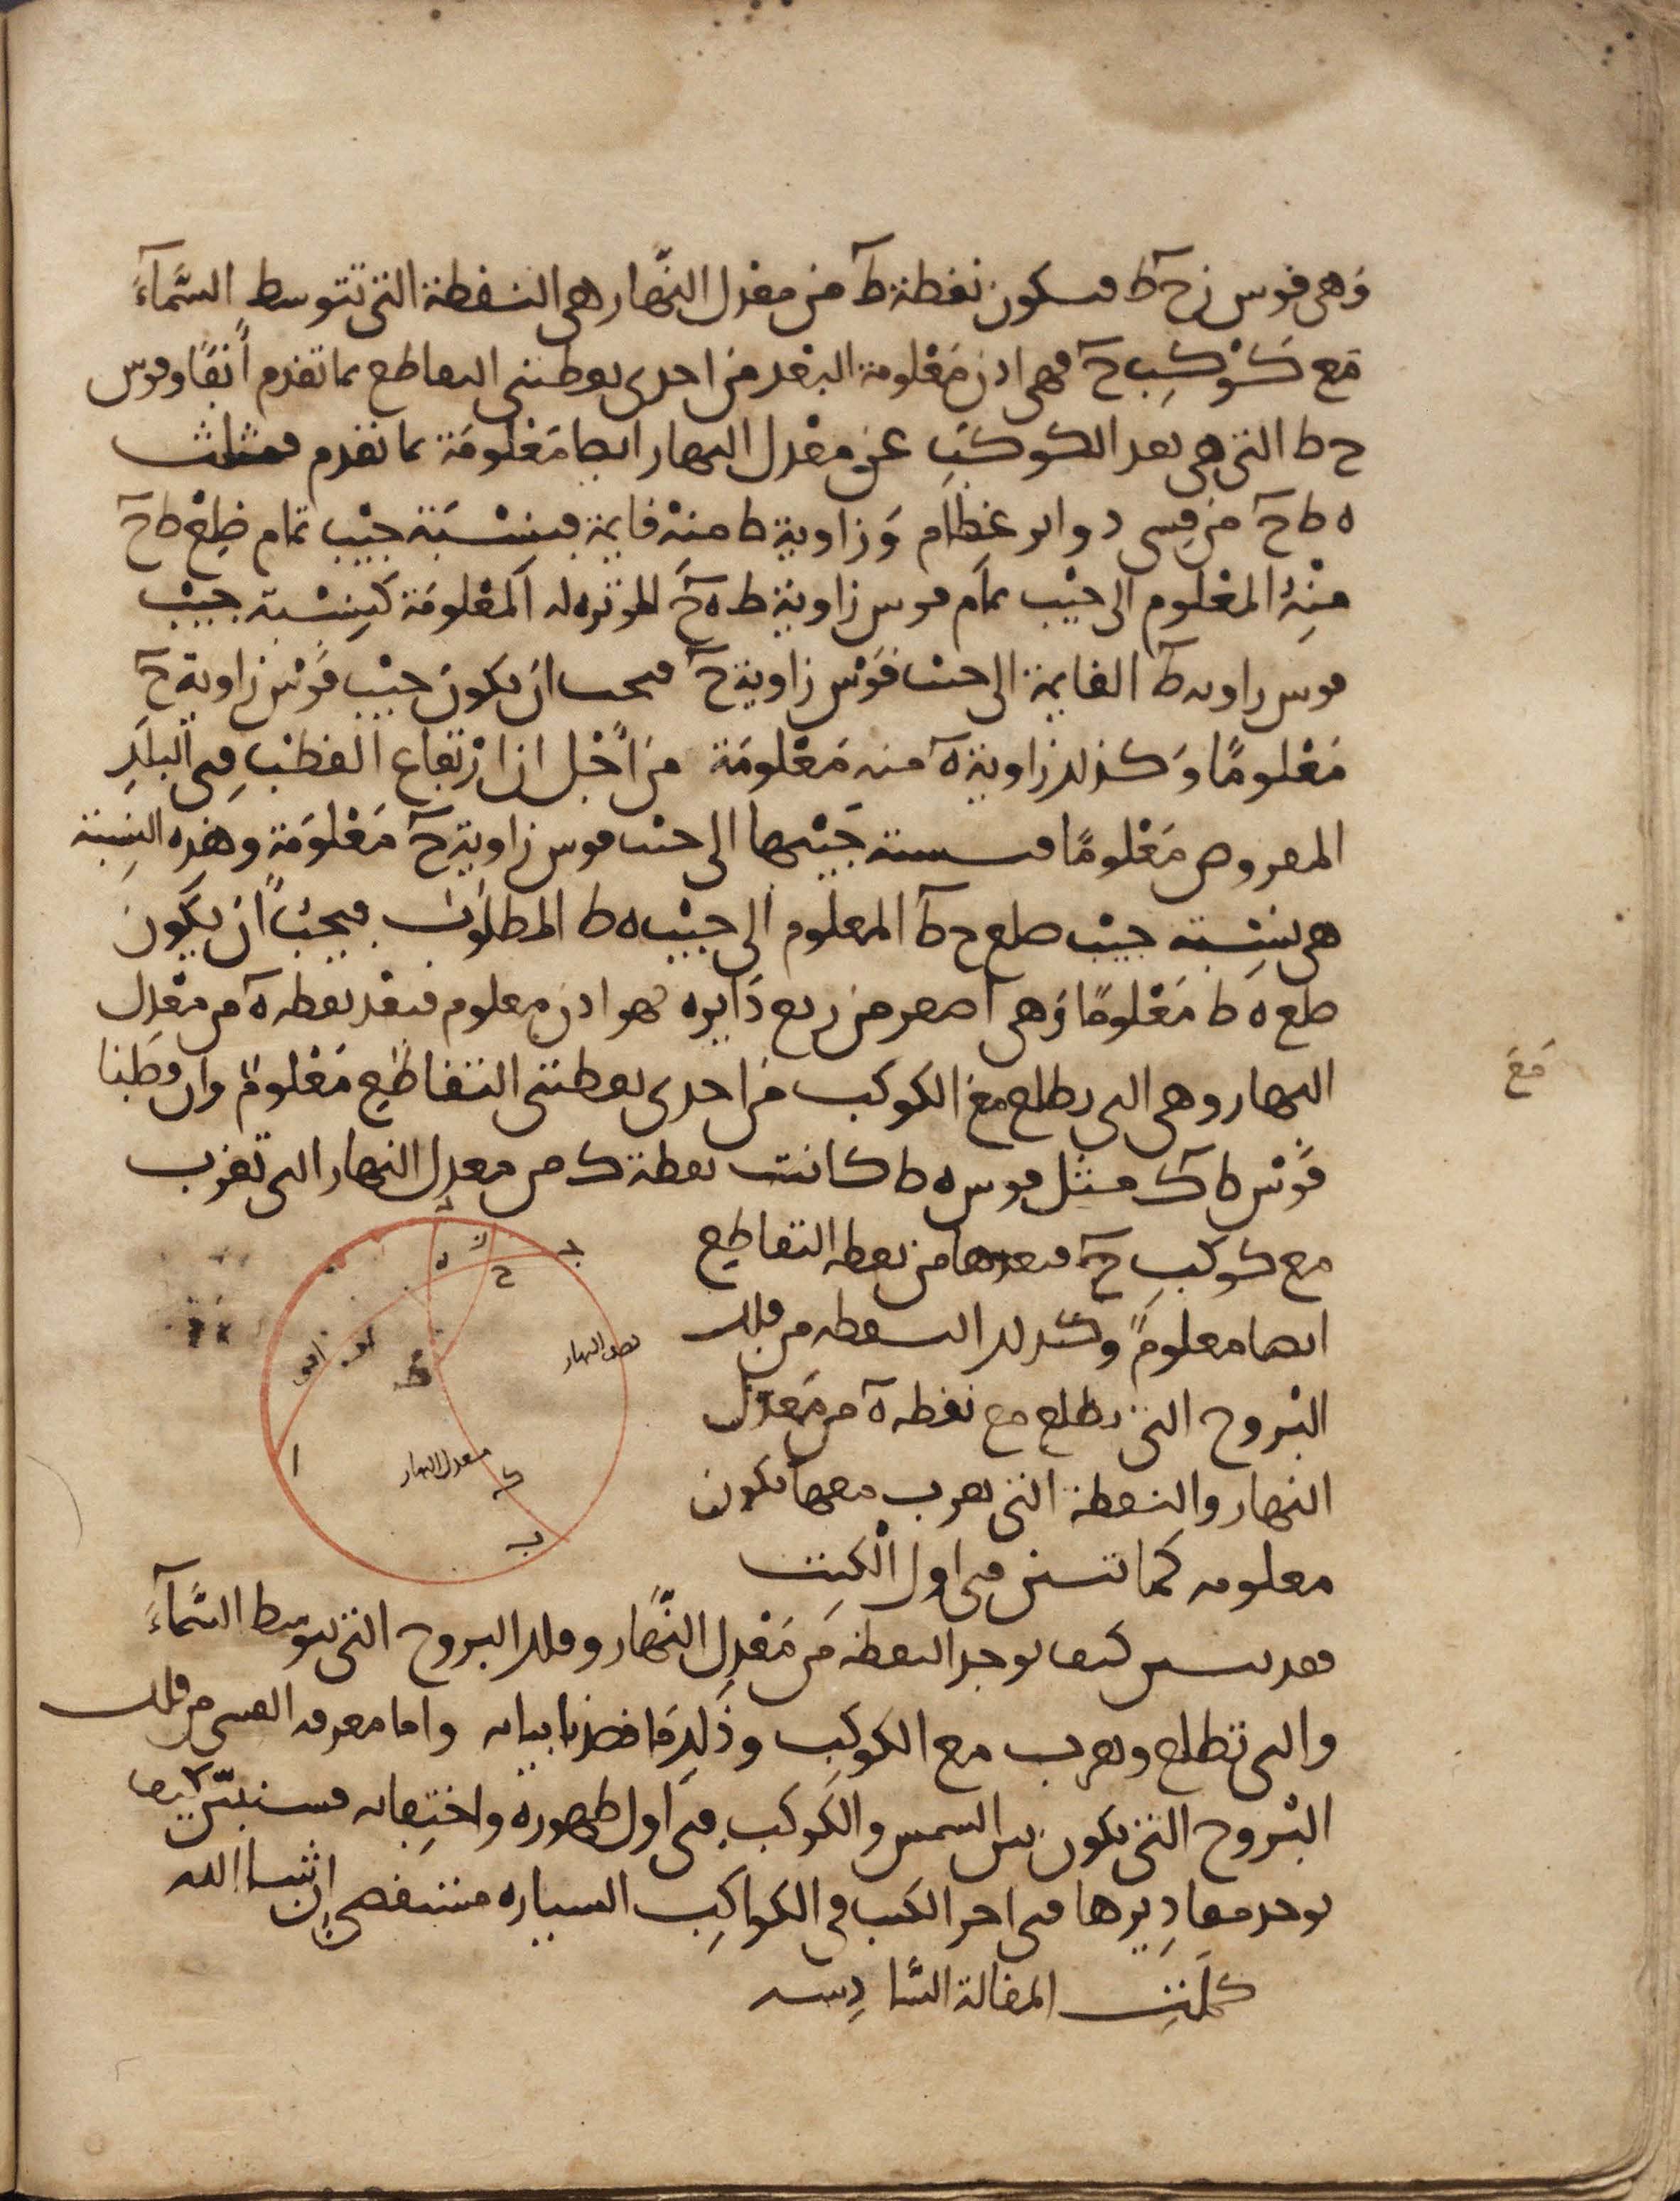 وَهى قوس زح ط فيكون نقطة ط من معدل النَّهار هى النقطة التى تتوسط السَّمآءَ
مَع كَوْكبِ ح فهى اذن مَعْلومة البعد من احدى نقطتى التقاطع بما تقدم اٰنفًا وقوس
ح ط التى هى بعد الكوكب عن معْدل النهار ايضا مَعْلومَة بما تقدم فمثلث
ه ط ح من قِسى دوائر عظام وَزاوية ط منهْ قايمة فنِسْبَة جيْب تمام ضِلْع ط ح
منْهُ المعْلوم الى جيْب تمام قوس زاوية ط ه ح الموترة له المعْلومَة كنِسْبة جيْب
قوس زاويه ط القايمة الى جيب قَوْس زاوية ح فيجب ان يكون جيْب قَوْس زاوية ح
مَعْلومًا وَكذلك زاوية ه منه مَعْلومَة من اَجْل ان ارْتفاع القطْب فِى البلَدِ
المعروض مَعْلومًا فنسبة جَيْبها الى جيب قوس زاوية ح مَعْلومَة وهذه النِسبة
هى نِسْبة جيْب ضلع ح ط المعلوم الى جيْب ه ط المطلوب فيجبُ اَن يكَون
ضلع ه ط مَعْلومًا وَهى اصغر من ربع دَايره فهو اذن معلوم فبعْد نقطه ه من معْدل
النهار وهى التى تطلع مع الكوكب من احدى نقطتى التقاطع مَعْلوم وان وصَلنا
مَعَ
قَوْس ط ك مثل قوس ه ط كانت نقطة ك من معدل النهار التى تغرب
مع كوكبِ ح فبعدها من نقطه التقاطع
ايضا معلومً وكذلك النقطه من فلك
البْروج التى تطلع مع نقطه ه من مَعدل
النهار والنقطة التى تغرب معها تكون
معلومه كما تبين فى اول الكِتب
فقد تبين كيف توجد النقطه من مَعْدِل النَّهار وفلك البروج التى تتوسط السَّمآءَ
والتى تطلع وتغرب مع الكوكب وذَلِك مَا قصَدنا بيانه واما معرفه القسى من فلك
البْروج التى تكون بين الشمس والكَوكب فى اَول ظهوره واختِفايه فسنبيّن كيف
توجد مقادِيرها فى اخر الكتب فى الكواكِب السياره مستقصى اِن شا الله
كملَتِ المقالة السَّادِسه
د
ز
ج
ه
ح
افق
نصف النهار
ط
ا
معدل النهار
ك
ب